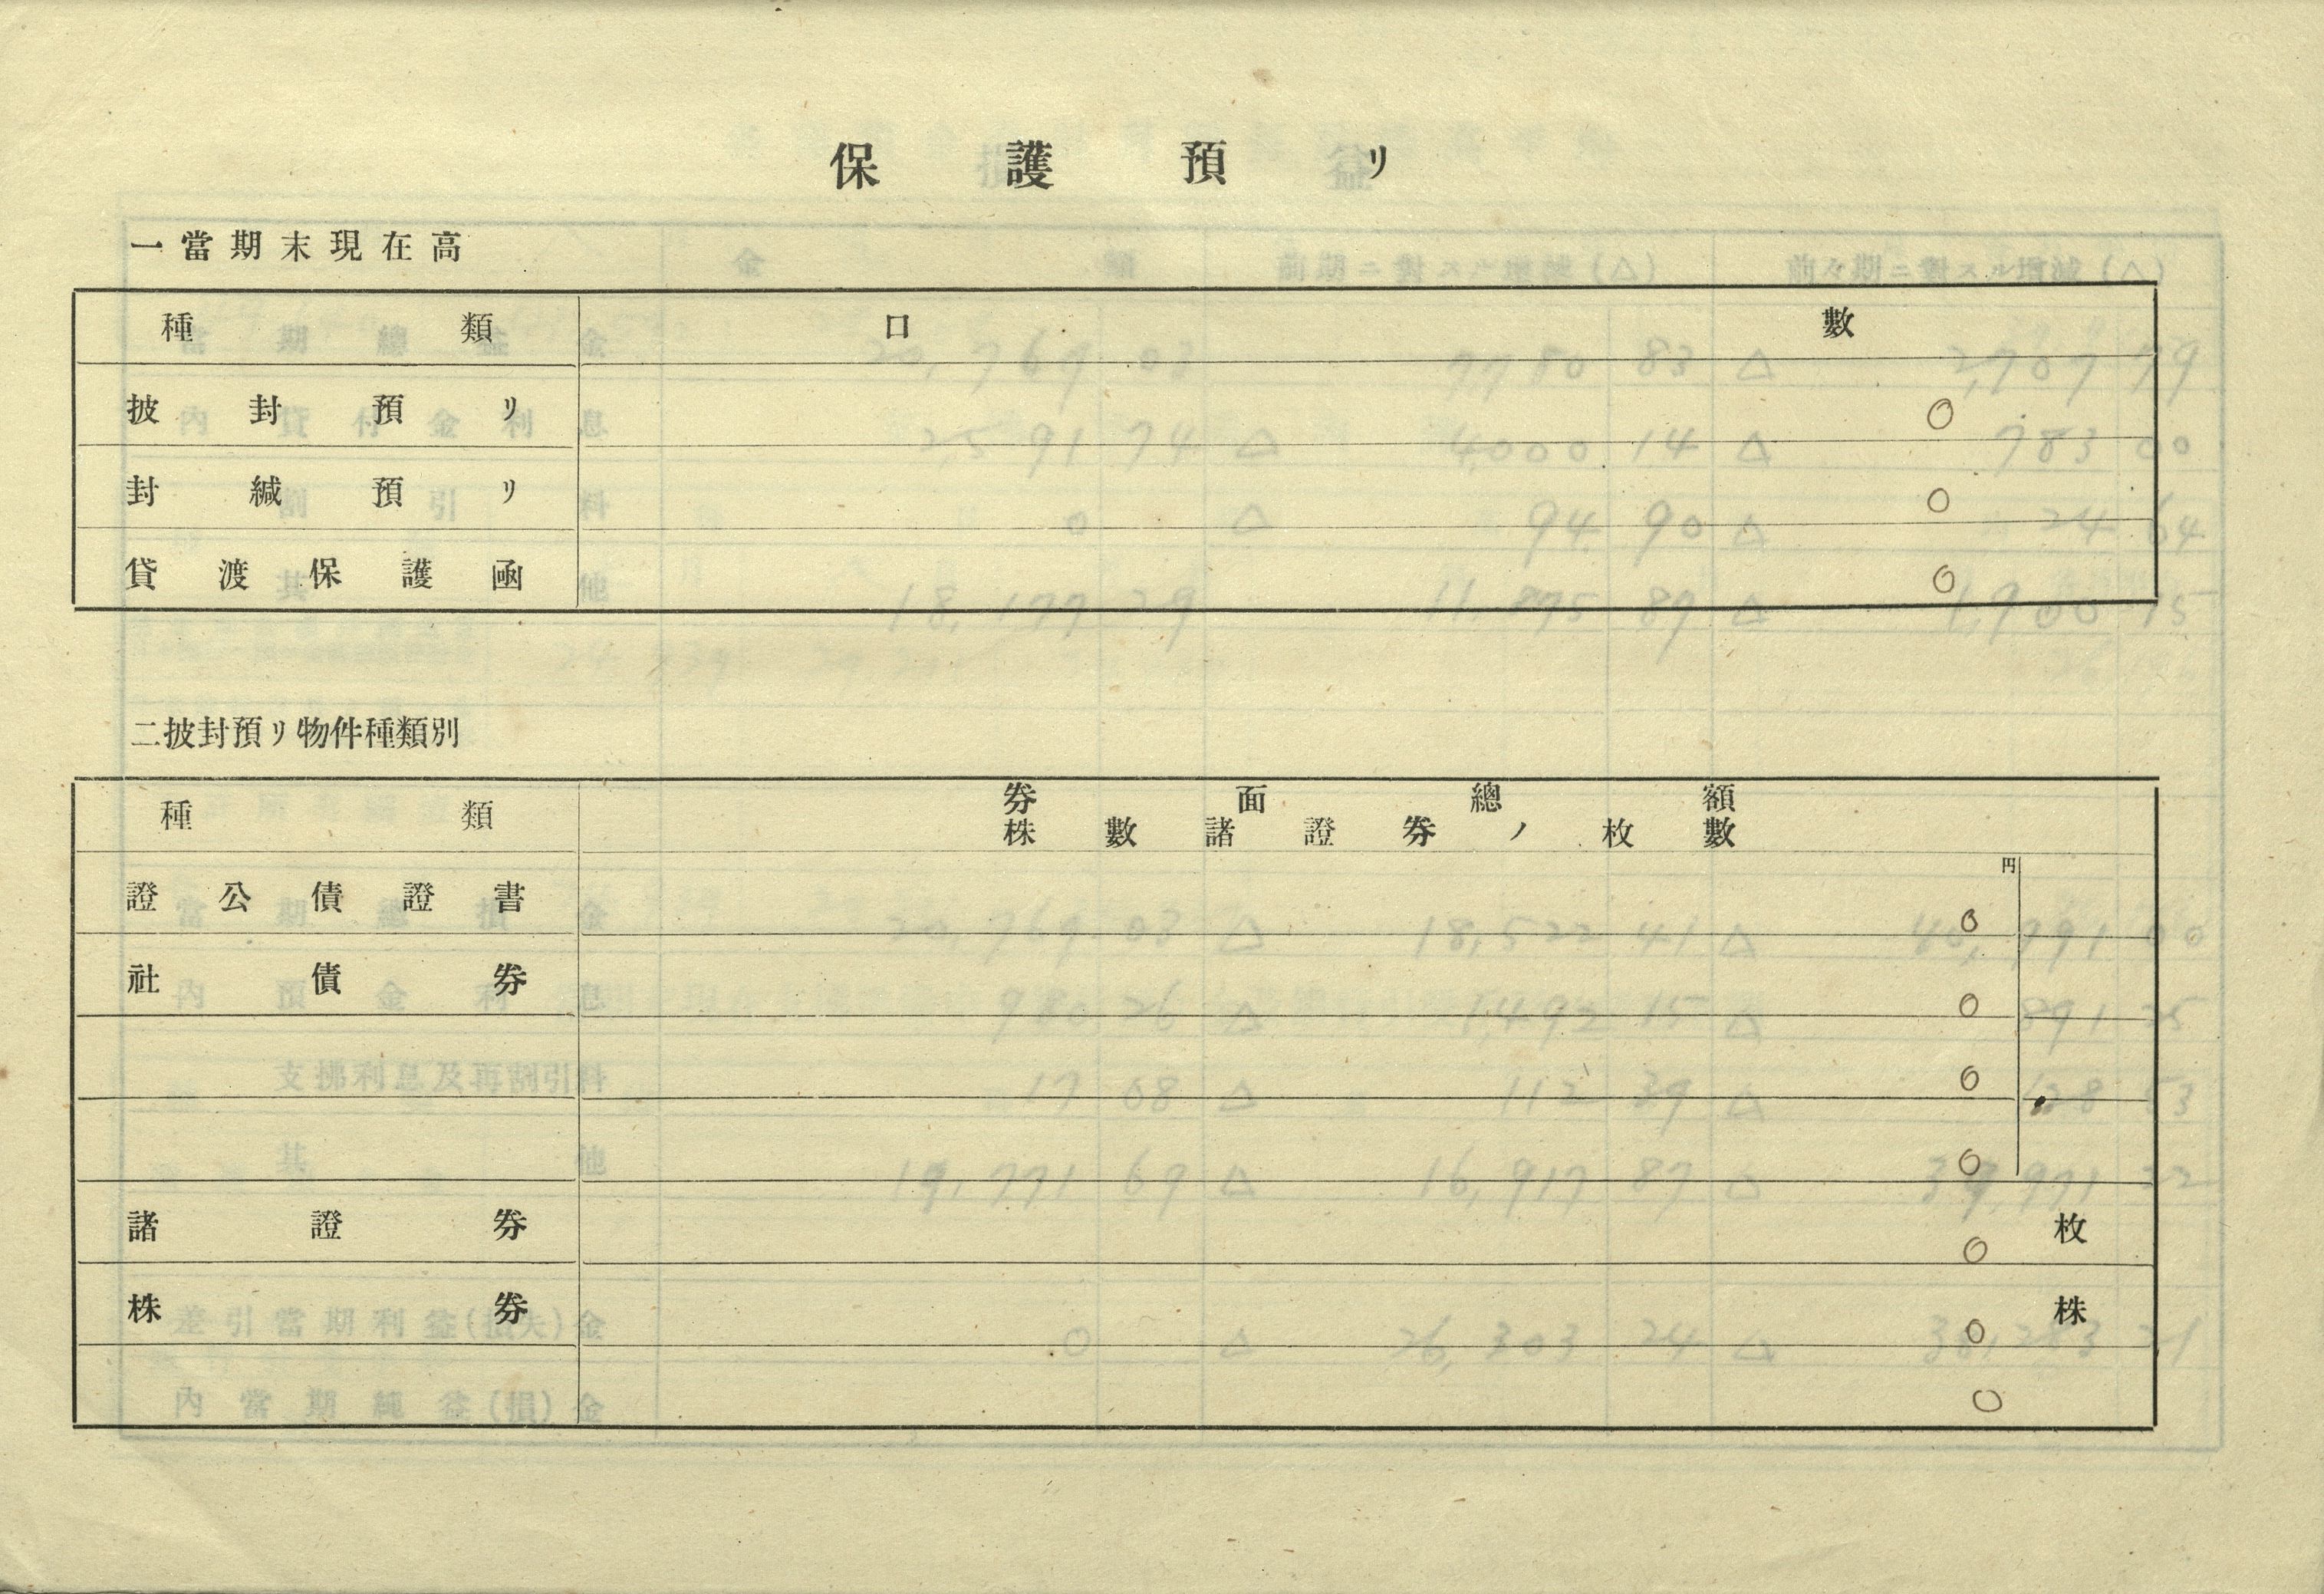 保護預リ
一當期末現在高
種類 口數
披封預リ 0
封緘預リ 0
貸渡保護凾 0
二披封預リ物件種類別
種類 券面總額
株數諸證券ノ枚數
円
證公債證書 0
社債券 0
0
0
諸證券 0 枚
株券 0 株
0